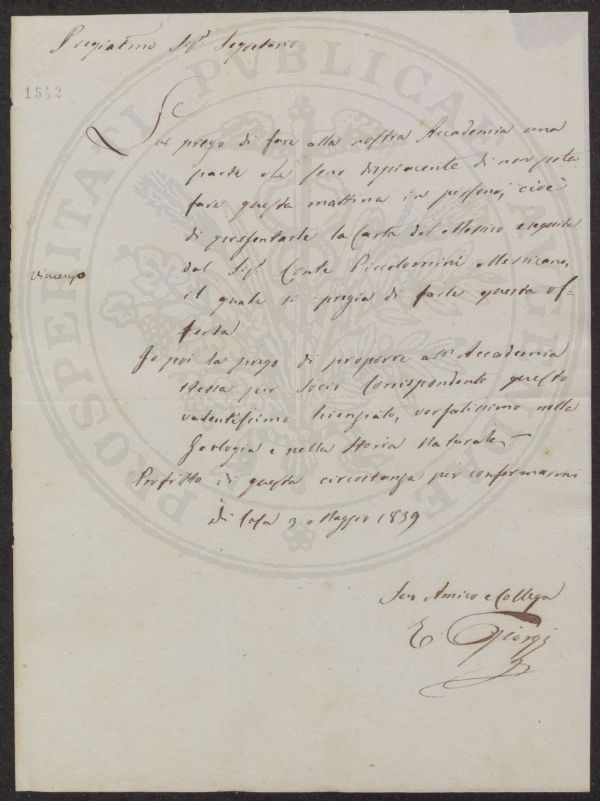 Pregiatmo Sigr Segretario
1542
La prego di fare alla nostra Accademia una
parte che sono dispiacente di non poter
fare questa mattina in persona; cioè
di presentarle la Carta del Messico eseguita
dal Sigr Conte Piccolomini Messicano,
Vincenzo
il quale si pregia di farle questa of=
ferta
Io poi la prego di proporre all'Accademia
stessa per Socio Corrispondente questo
valentissimo scienziato, versatissimo nella
Geologia e nella Storia Naturale,
Profitto di questa circostanza per confermarmi
Di Casa 3 Maggio 1839
Suo Amico e Collega
E. Giorgi
PROSPERITATI PVBLICAE AVGENDAE